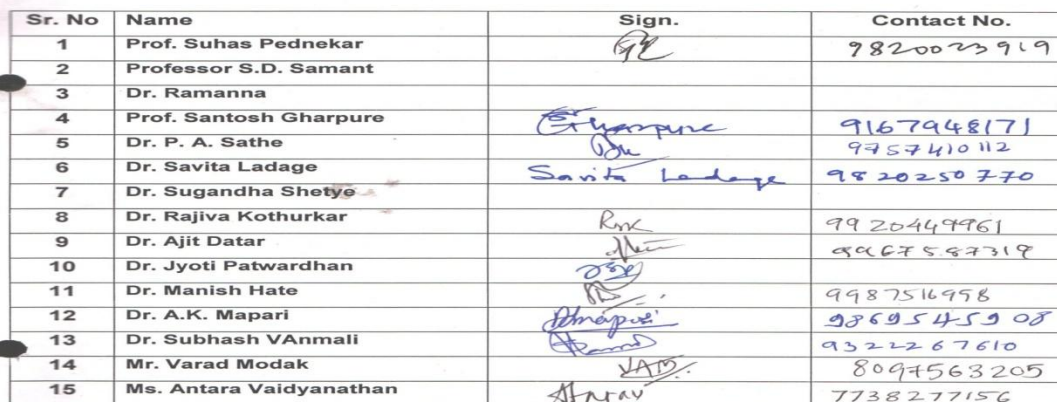 Sr. No Name Sign. Contact No.
1 Prof. Suhas Pednekar 9820023919
2 Professor S.D. Samant
3 Dr. Ramanna
4 Prof. Santosh Gharpure Gharpure 9167948171
5 Dr. P. A. Sathe 9757410112
6 Dr. Savita Ladage Savita Ladage 9820250770
7 Dr. Sugandha Shetye
8 Dr. Rajiva Kothurkar 9920449961
9 Dr. Ajit Datar 9967587319
10 Dr. Jyoti Patwardhan
11 Dr. Manish Hate 9987516958
12 Dr. A.K. Mapari 9869545908
13 Dr. Subhash VAnmali 9322267610
14 Mr. Varad Modak VAM 8097563205
15 Ms. Antara Vaidyanathan 7738277156